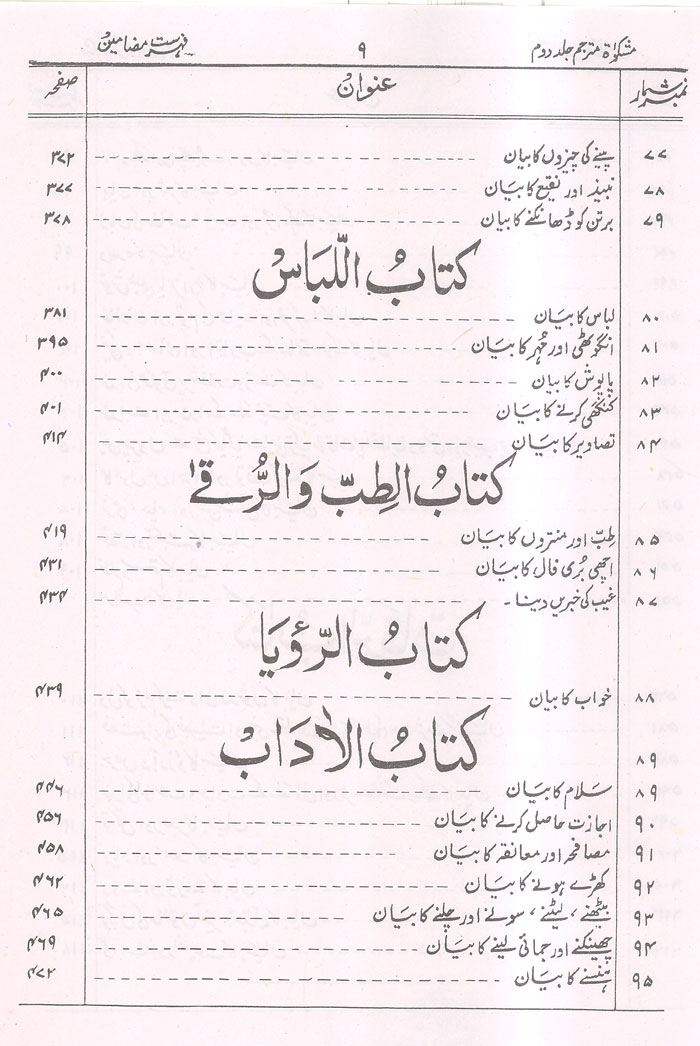 مشکوٰۃ مترجم جلد دوم ۹ فہرست مضامین
نمبر شمار عنوان صفحہ
۷۷ پینے کی چیزوں کا بیان ۳۷۲
۷۸ نبیذ اور نقیع کا بیان ۳۷۷
۷۹ برتن کو ڈھانکنے کا بیان ۳۷۸
کتابُ اللّبَاسْ
۸۰ لباس کا بیان ۳۸۱
۸۱ انگوٹھی اور مُہر کا بیان ۳۹۵
۸۲ پاپوش کا بیان ۴۰۰
۸۳ کنگھی کرنے کا بیان ۴۰۱
۸۴ تصاویر کا بیان ۴۱۴
کتابُ الطِبّ وَالرُّقےٰ
۸۵ طِبّ اور منتروں کا بیان ۴۱۹
۸۶ اچھی بُری فال کا بیان ۴۳۱
۸۷ غیب کی خبریں دینا۔ ۴۳۴
کتابُ الرّؤیَا
۸۸ خواب کا بیان ۴۳۹
۸۹ کتابُ الاٰدَابْ
۸۹ سلام کا بیان ۴۴۶
۹۰ اجازت حاصل کرنے کا بیان ۴۵۶
۹۱ مصافحہ اور معانقہ کا بیان ۴۵۸
۹۲ کھڑے ہونے کا بیان ۴۶۲
۹۳ بیٹھنے، لیٹنے، سونے اور چلنے کا بیان ۴۶۵
۹۴ چھینکنے اور جمائی لینے کا بیان ۴۶۹
۹۵ ہنسنے کا بیان ۴۷۲